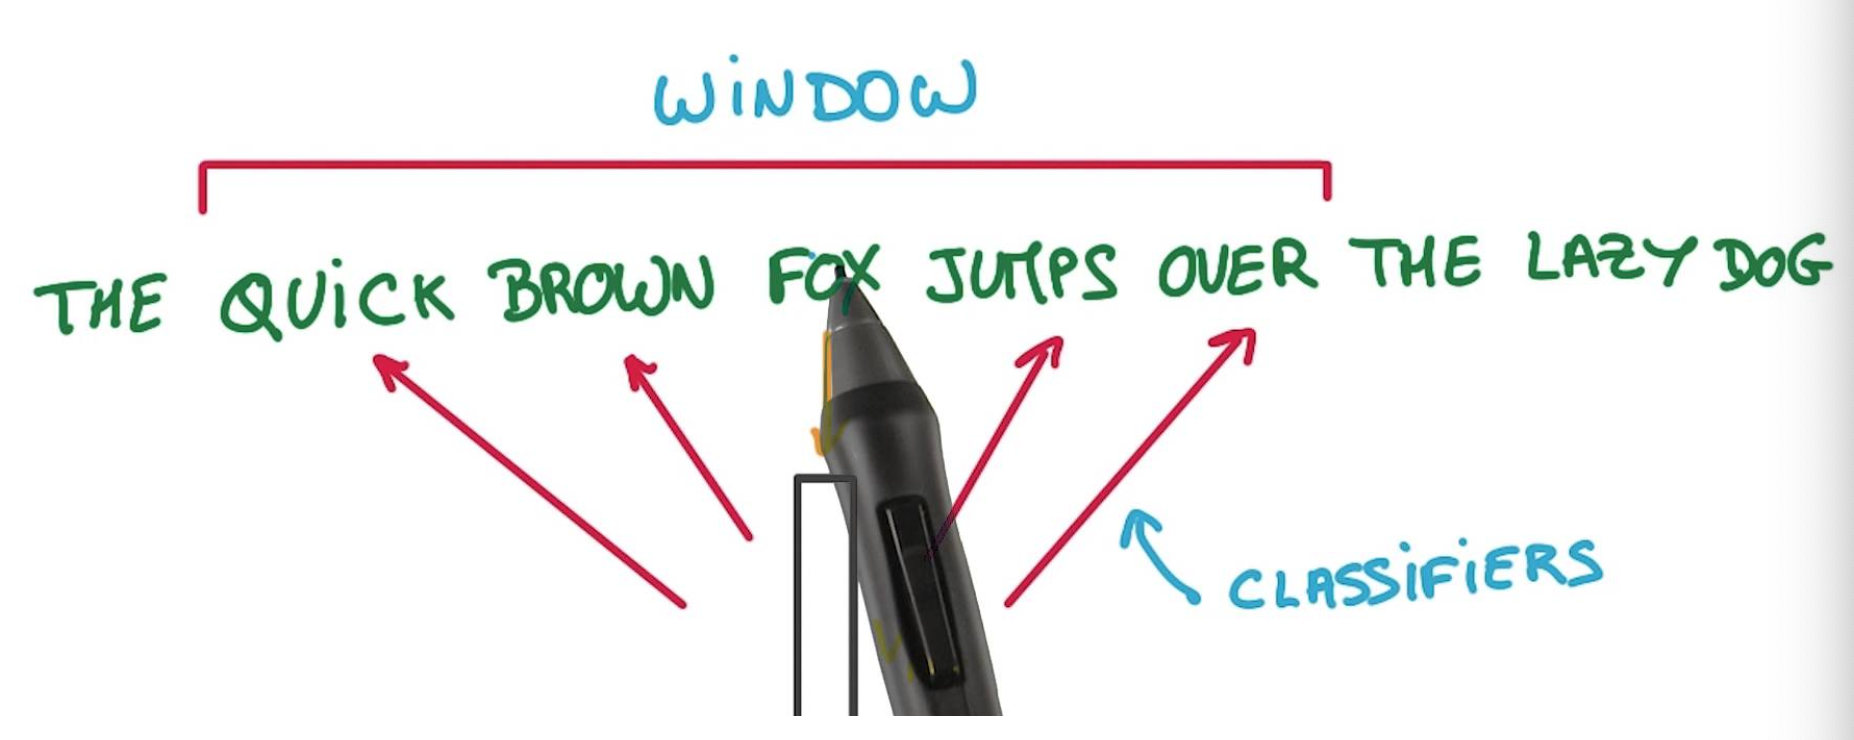 WiNDOW
THE QUiCK BROWN FOX JUMPS OVER THE LAZY DOG
CLASSiFiERS